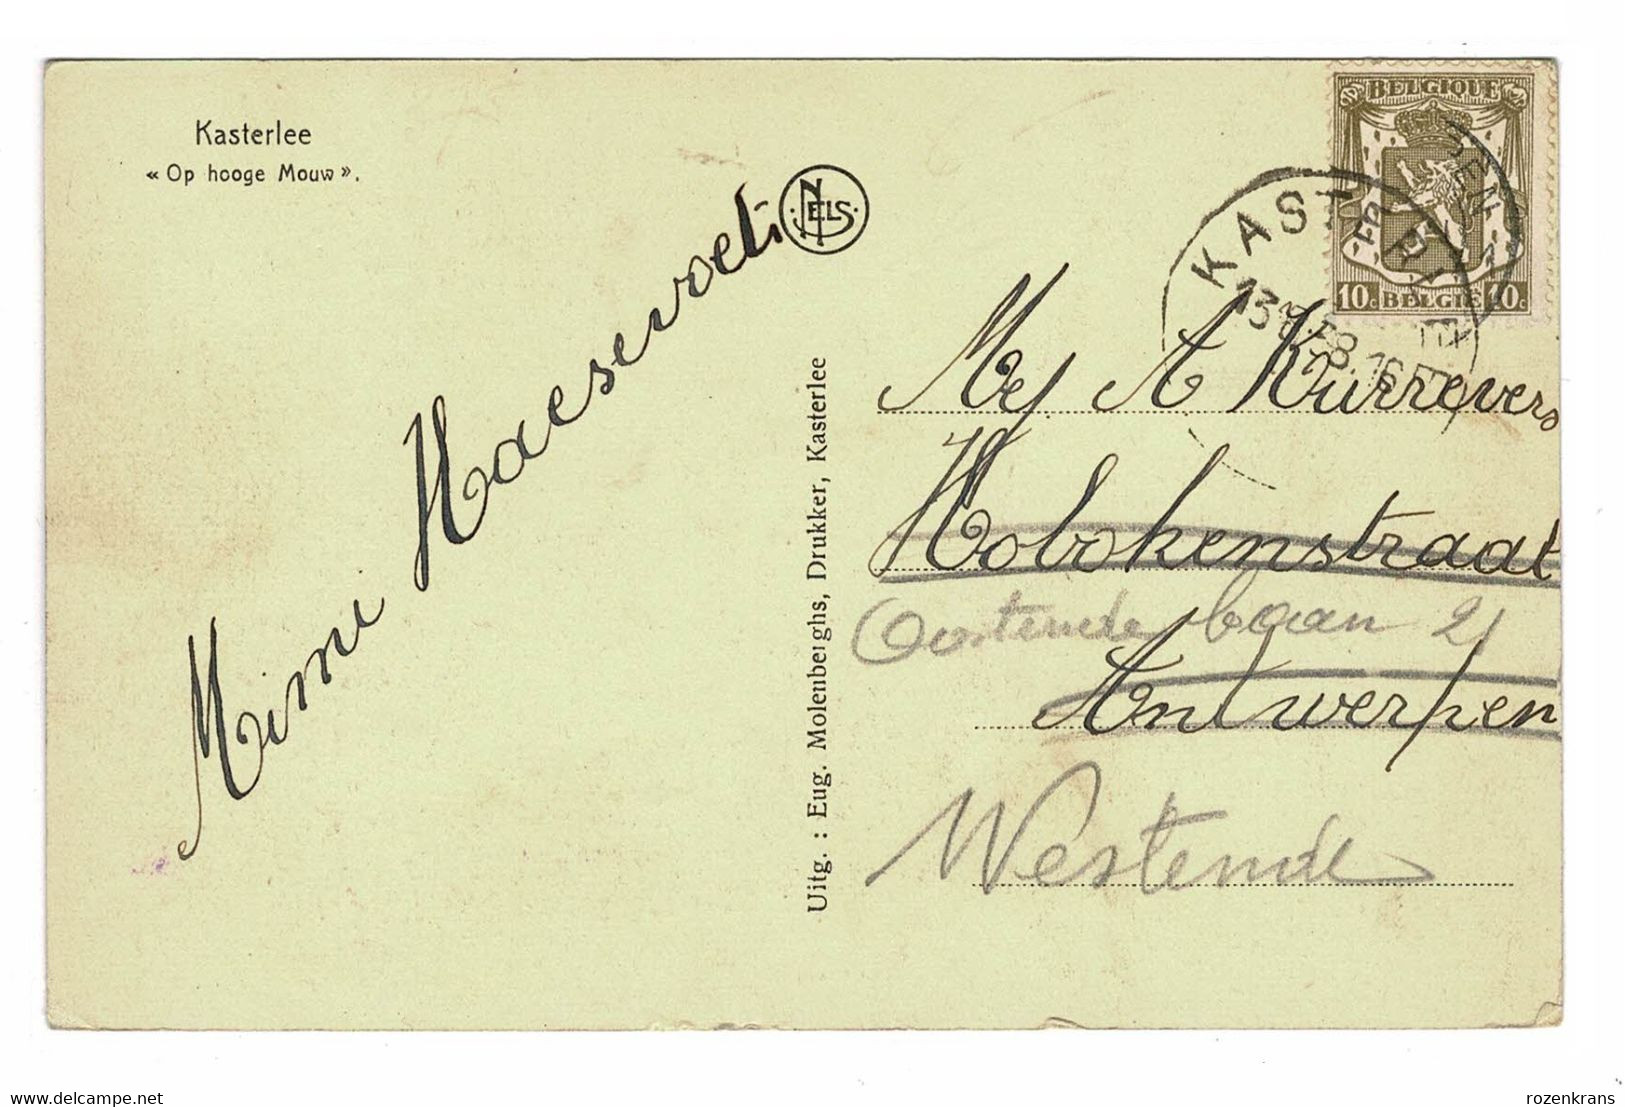 Kasterlee
« Op hooge Mouw ».
NELS
Mimi Haesevoets
Uitg. : Eug. Molenberghs, Drukker, Kasterlee
BELGIQUE
10c BELGIË 10c
KASTERLEE
Mej. A Kurrevers
Hobokenstraat
Oostende baan 21
Antwerpen
Westende
www.delcampe.net
rozenkrans